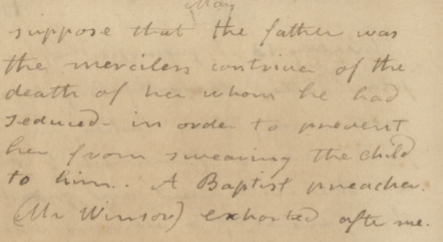 May
suppose that the father was
the merciless contriver of the
death of her whom he had
seduced - in order to prevent
her from swearing the child
to him. A Baptist preacher.
(Mr Winsor) exhorted after me.